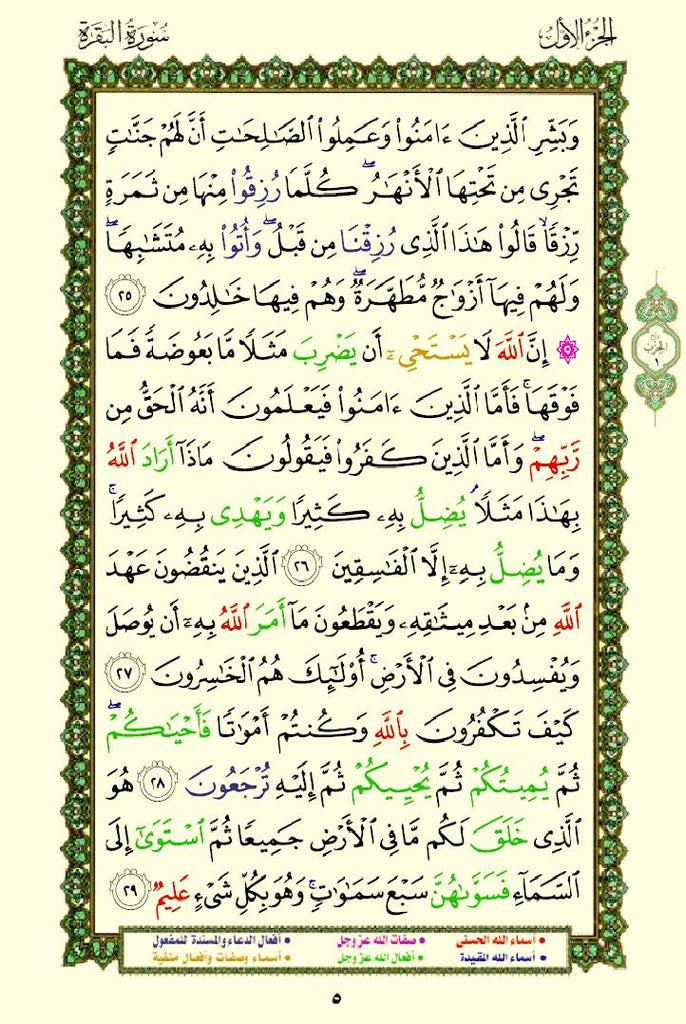 الجزء الأول
سورة البقرة
وَبَشِّرِ ٱلَّذِينَ ءَامَنُوا۟ وَعَمِلُوا۟ ٱلصَّـٰلِحَـٰتِ أَنَّ لَهُمْ جَنَّـٰتٍ
تَجْرِى مِن تَحْتِهَا ٱلْأَنْهَـٰرُ ۖ كُلَّمَا رُزِقُوا۟ مِنْهَا مِن ثَمَرَةٍ
رِّزْقًا ۙ قَالُوا۟ هَـٰذَا ٱلَّذِى رُزِقْنَا مِن قَبْلُ ۖ وَأُتُوا۟ بِهِۦ مُتَشَـٰبِهًا ۖ
وَلَهُمْ فِيهَآ أَزْوَٰجٌ مُّطَهَّرَةٌ ۖ وَهُمْ فِيهَا خَـٰلِدُونَ ٢٥
۞ إِنَّ ٱللَّهَ لَا يَسْتَحْىِۦٓ أَن يَضْرِبَ مَثَلًا مَّا بَعُوضَةً فَمَا
فَوْقَهَا ۚ فَأَمَّا ٱلَّذِينَ ءَامَنُوا۟ فَيَعْلَمُونَ أَنَّهُ ٱلْحَقُّ مِن
رَّبِّهِمْ ۖ وَأَمَّا ٱلَّذِينَ كَفَرُوا۟ فَيَقُولُونَ مَاذَآ أَرَادَ ٱللَّهُ
بِهَـٰذَا مَثَلًا ۘ يُضِلُّ بِهِۦ كَثِيرًا وَيَهْدِى بِهِۦ كَثِيرًا ۚ
وَمَا يُضِلُّ بِهِۦٓ إِلَّا ٱلْفَـٰسِقِينَ ٢٦ ٱلَّذِينَ يَنقُضُونَ عَهْدَ
ٱللَّهِ مِنۢ بَعْدِ مِيثَـٰقِهِۦ وَيَقْطَعُونَ مَآ أَمَرَ ٱللَّهُ بِهِۦٓ أَن يُوصَلَ
وَيُفْسِدُونَ فِى ٱلْأَرْضِ ۚ أُو۟لَـٰٓئِكَ هُمُ ٱلْخَـٰسِرُونَ ٢٧
كَيْفَ تَكْفُرُونَ بِٱللَّهِ وَكُنتُمْ أَمْوَٰتًا فَأَحْيَـٰكُمْ ۖ
ثُمَّ يُمِيتُكُمْ ثُمَّ يُحْيِيكُمْ ثُمَّ إِلَيْهِ تُرْجَعُونَ ٢٨ هُوَ
ٱلَّذِى خَلَقَ لَكُم مَّا فِى ٱلْأَرْضِ جَمِيعًا ثُمَّ ٱسْتَوَىٰٓ إِلَى
ٱلسَّمَآءِ فَسَوَّىٰهُنَّ سَبْعَ سَمَـٰوَٰتٍ ۚ وَهُوَ بِكُلِّ شَىْءٍ عَلِيمٌ ٢٩
الحزب ١
• أسماء الله الحسنى • صفات الله عز وجل • أفعال الدعاء والمسندة للمفعول
• أسماء الله المقيدة • أفعال الله عز وجل • أسماء وصفات وأفعال منفية
٥